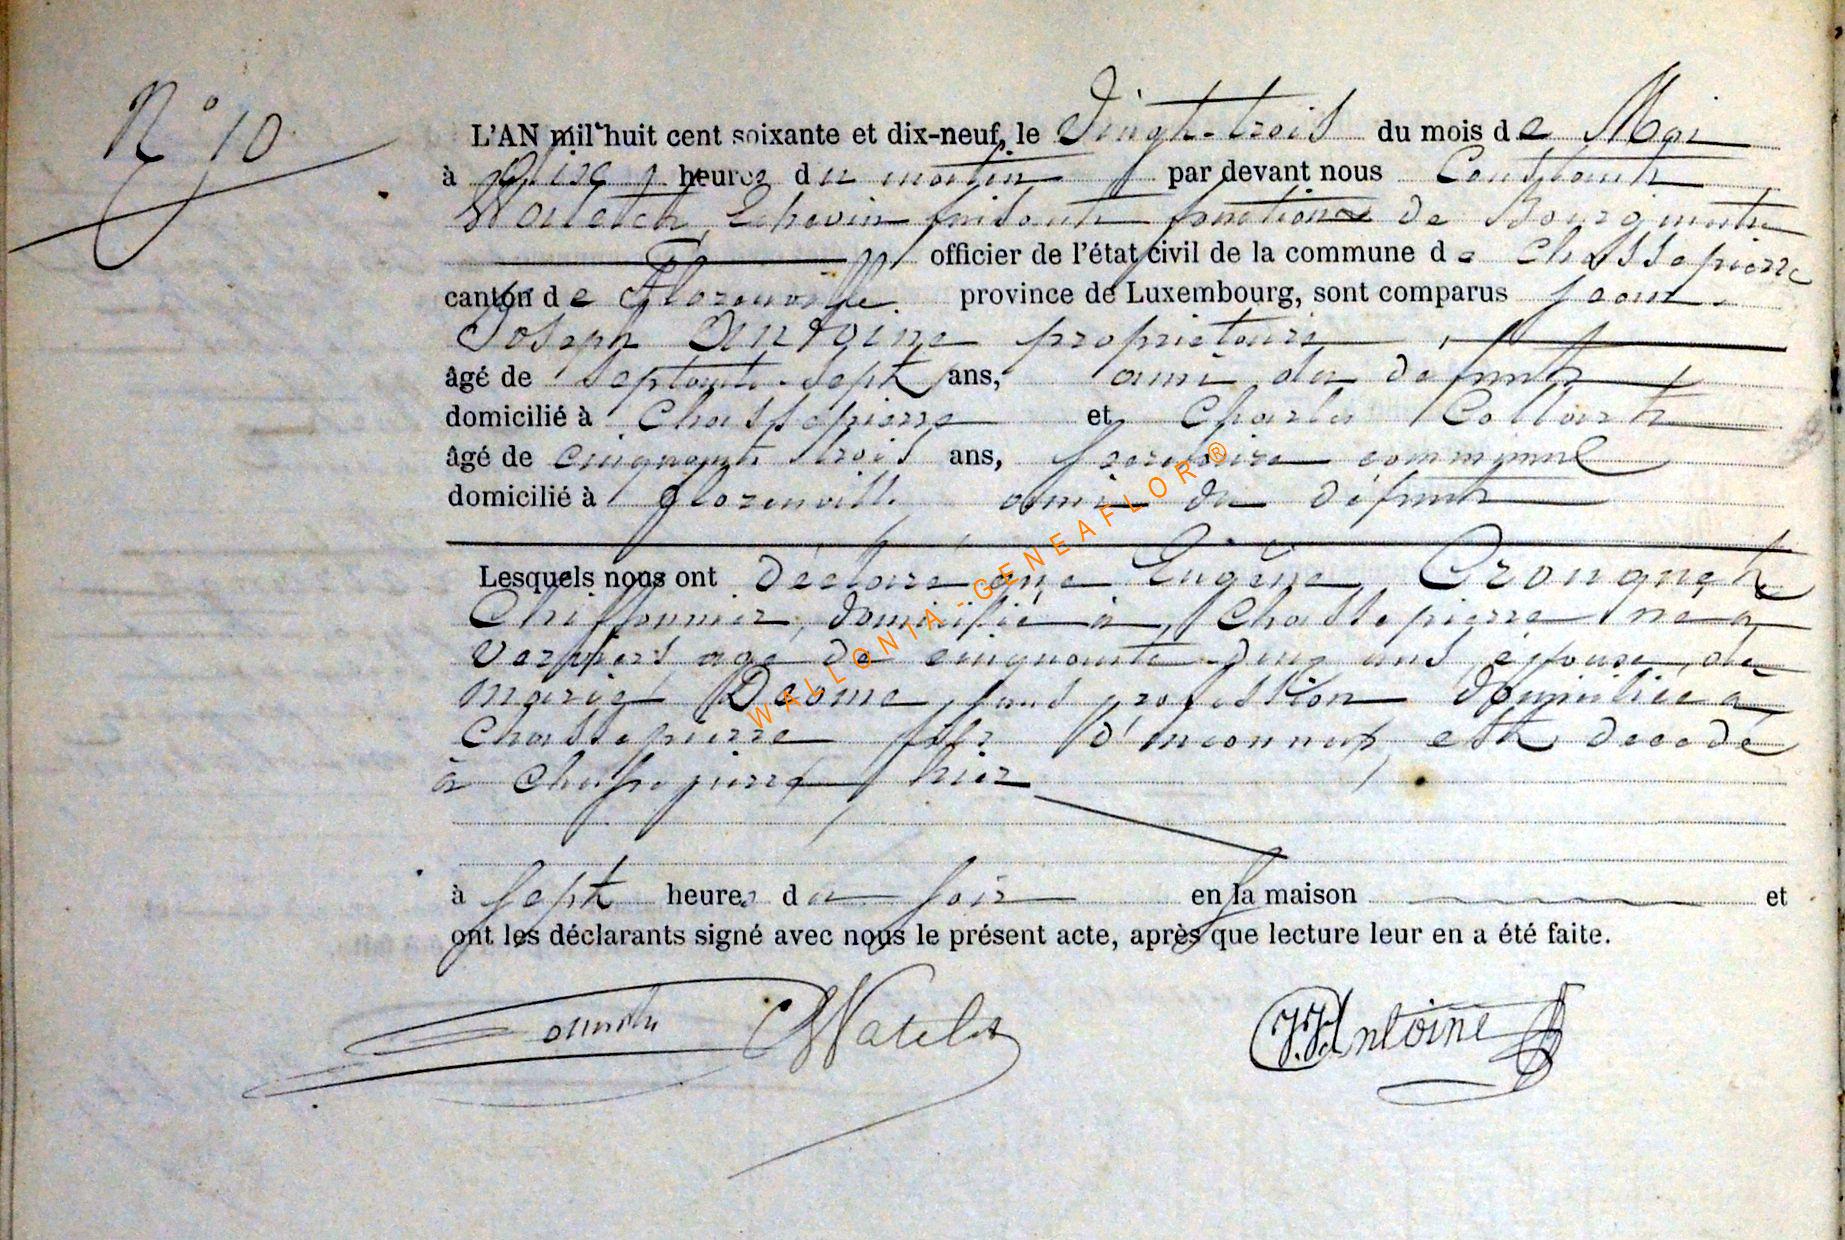 N° 10
L'AN mil huit cent soixante et dix-neuf, le Vingt-trois du mois de Mai
à onze heures du matin par devant nous Constant
Watelet, Echevin faisant fonctions de Bourgmestre
officier de l'état civil de la commune de Chassepierre
canton de Florenville province de Luxembourg, sont comparus Jean
Joseph Antoine proprietaire
âgé de septante-sept ans, ami du defunt
domicilié à Chassepierre et Charles Collart
âgé de cinquante trois ans, secretaire communal
domicilié à Florenville ami du défunt
Lesquels nous ont déclaré que Eugène Crouquet
Chiffonnier, domicilié à Chassepierre né a
Verviers agé de cinquante-cinq ans, époux de
Marie Deome, sans profession domiciliée a
Chassepierre fils d'inconnus, est decedé
à Chassepierre hier
à sept heures du soir en la maison et
ont les déclarants signé avec nous le présent acte, après que lecture leur en a été faite.
CWatelet J.J. Antoine
WALLONIA-GENEAFLOR ®